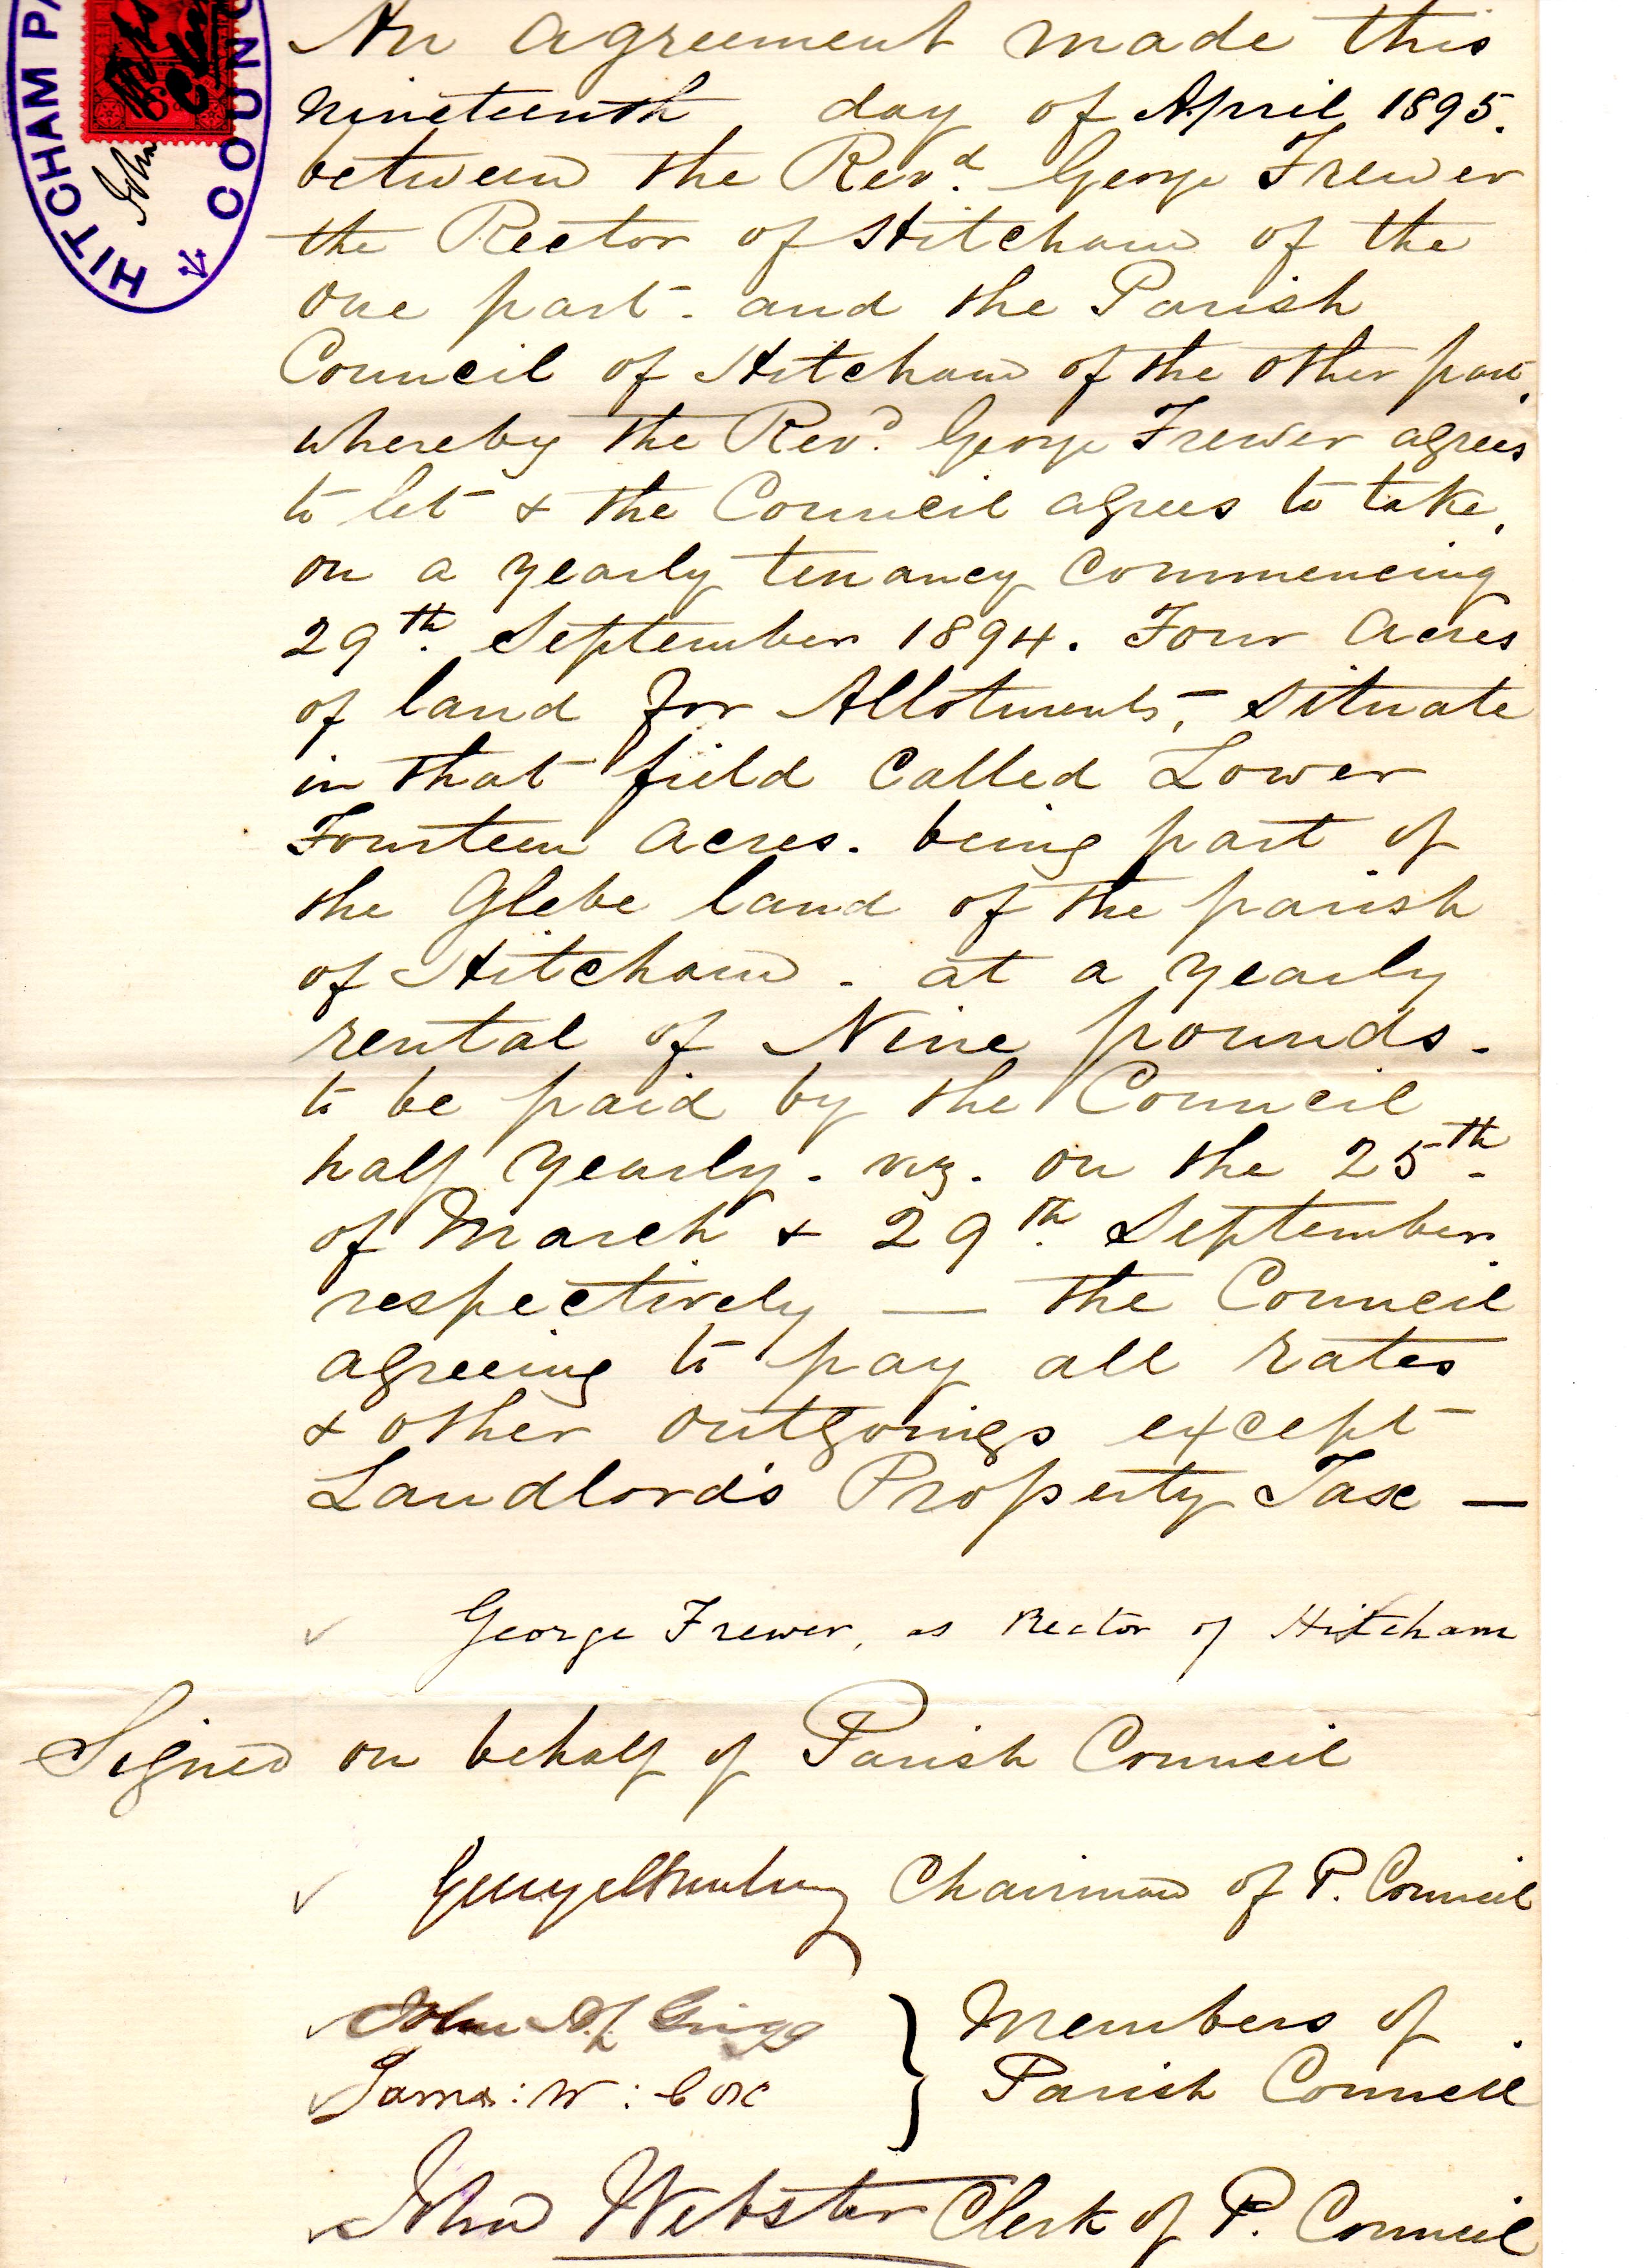 HITCHAM PA
COUNC
John
An agreement made this
nineteenth day of April 1895.
between the Revd. George Frewer
the Rector of Hitcham of the
one part - and the Parish
Council of Hitcham of the other part,
whereby the Revd. George Frewer agrees
to let & the Council agrees to take,
on a yearly tenancy commencing
29th. September 1894. Four acres
of land for Allotments, - situate
in that field called Lower
Fourteen acres. being part of
the Glebe land of the parish
of Hitcham - at a yearly
rental of Nine pounds -
to be paid by the Council
half yearly. viz. on the 25th
of March & 29th. September
respectively — the Council
agreeing to pay all rates
& other outgoings except
Landlord's Property Tax —
George Frewer, as Rector of Hitcham
Signed on behalf of Parish Council
Chairman of P. Council
John Grigg } Members of
James : W : Cox } Parish Council
John Webster Clerk of P. Council